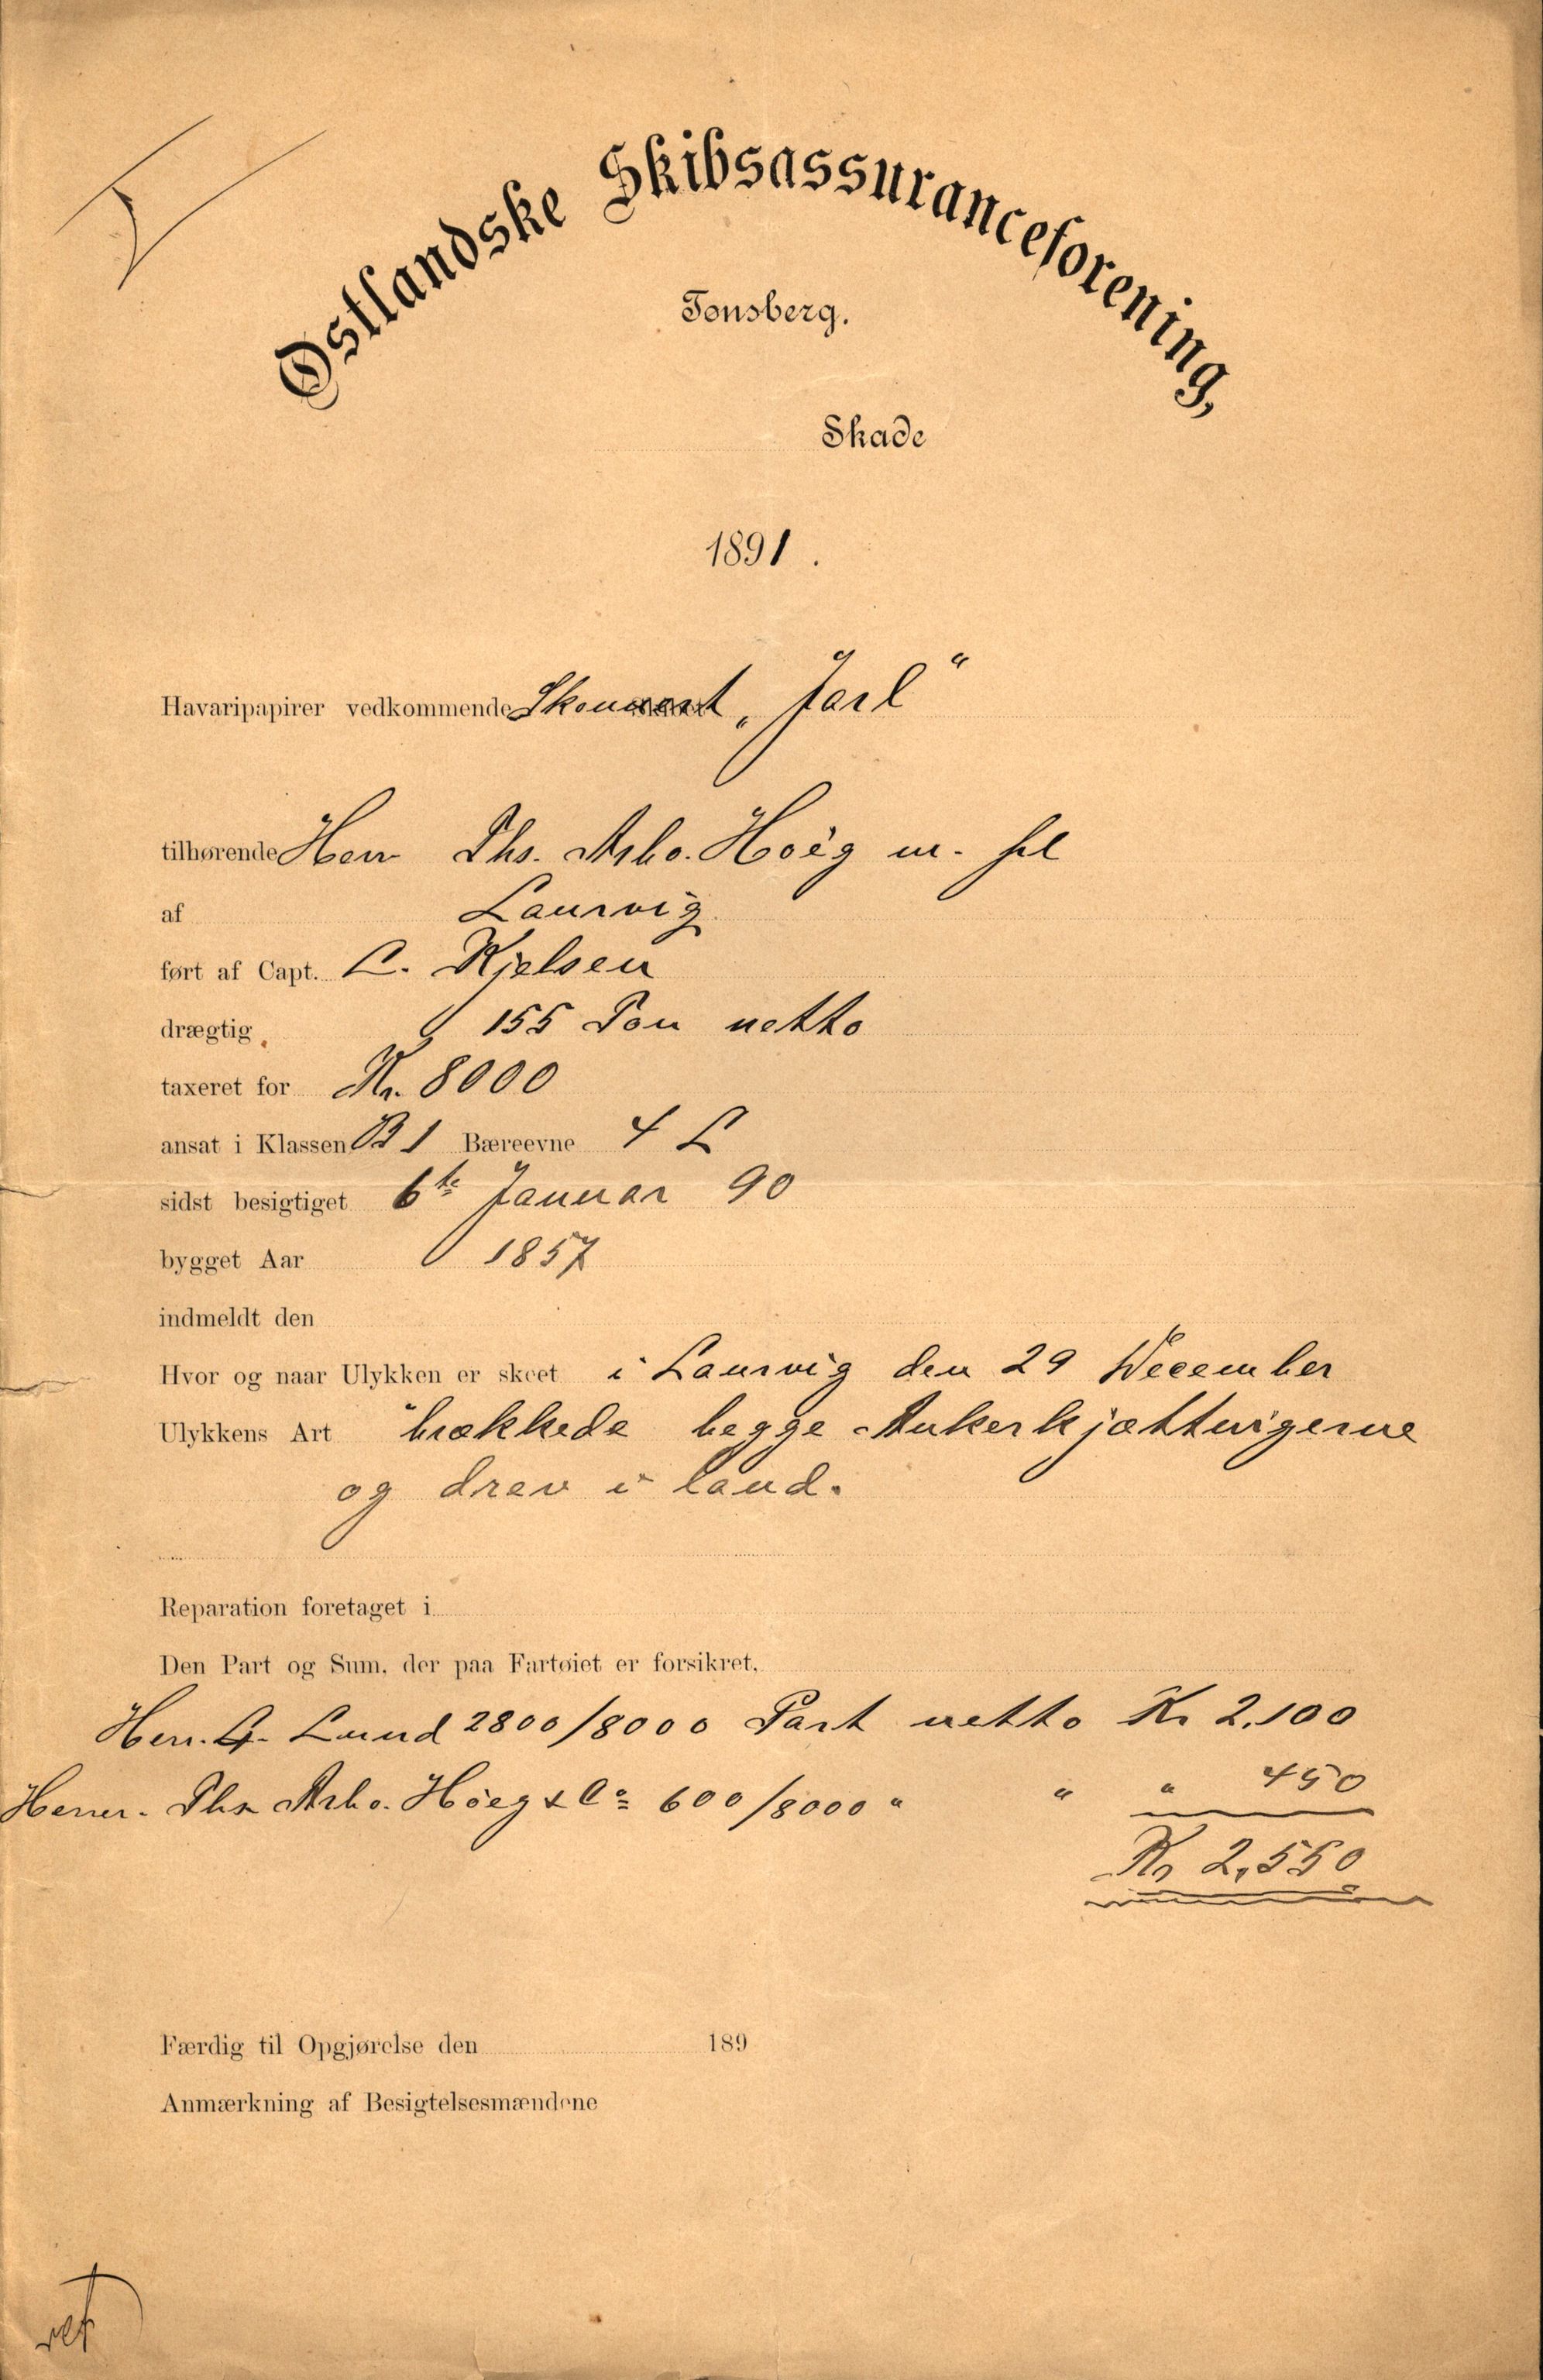 Østlandske Skibsassuranceforening,
Tønsberg.
Skade
1891.
Havaripapirer vedkommende Skonnert „Jarl“
tilhørende Herr Ths. Arbo. Höeg m. fl
af Laurvig
ført af Capt. C. Kjelsen
drægtig 155 Ton netto
taxeret for Kr. 8000
ansat i Klassen B 1 Bæreevne 4 L
sidst besigtiget 6te Januar 90
bygget Aar 1857
indmeldt den
Hvor og naar Ulykken er skeet i Laurvig den 29 December
Ulykkens Art brækkede begge Ankerkjættingerne
og drev i land.
Reparation foretaget i
Den Part og Sum, der paa Fartøiet er forsikret,
Herr. G. Lund 2800/8000 Part netto Kr 2.100
Herrer. Ths Arbo. Höeg & Co 600/8000 " " " 450
Kr 2,550
Færdig til Opgjørelse den 189
Anmærkning af Besigtelsesmændene